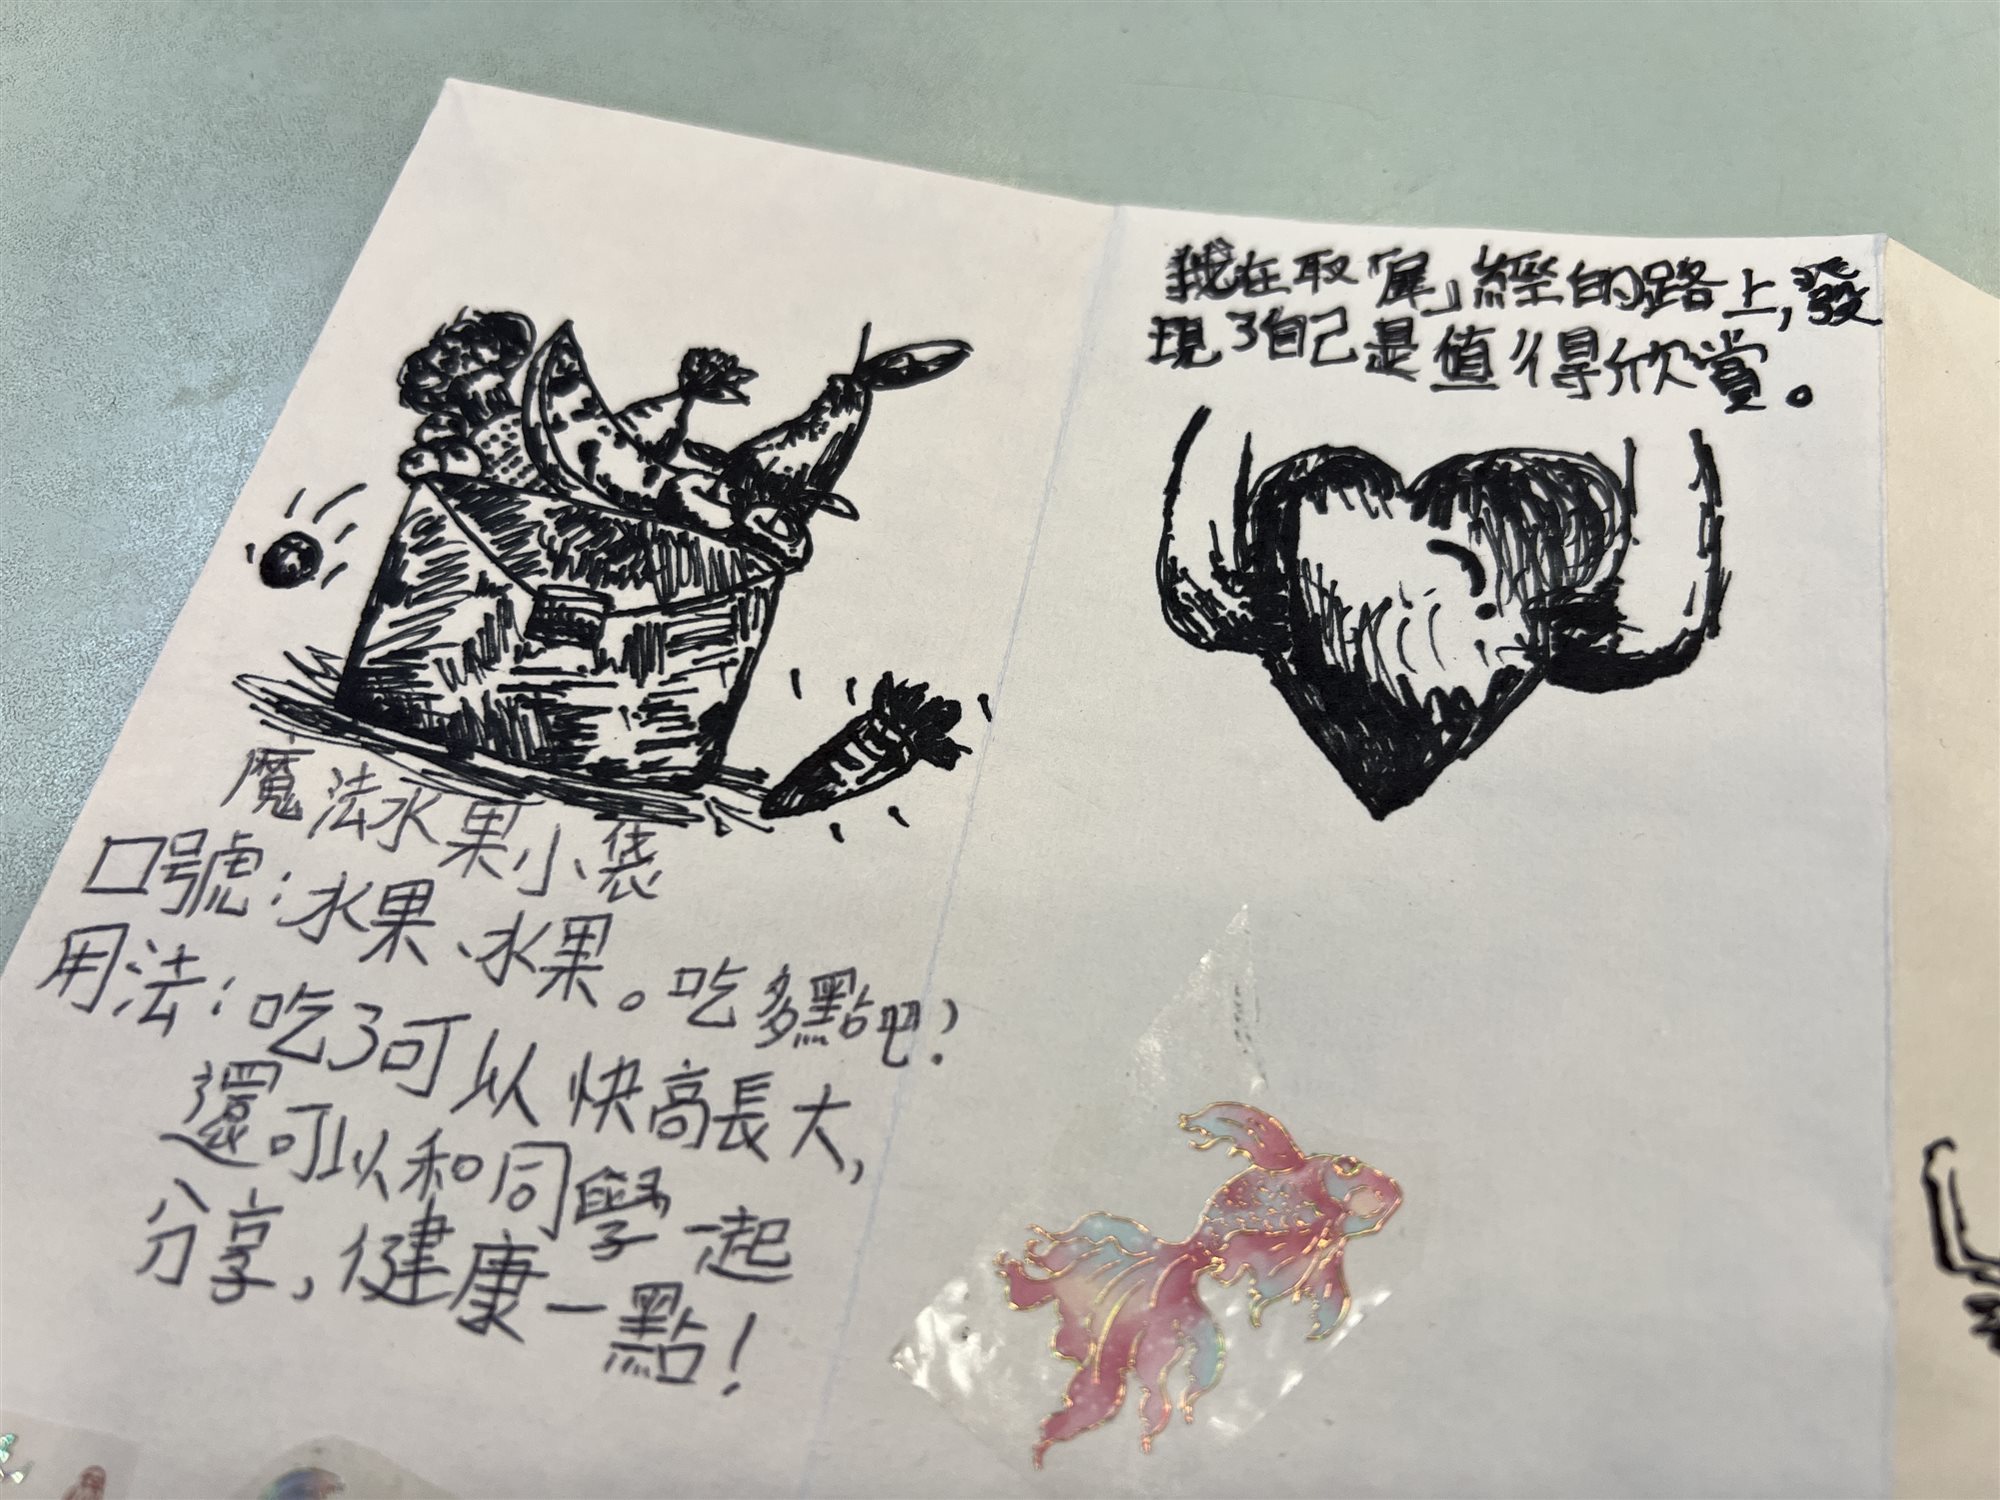 魔法水果小袋
口號：水果、水果。吃多點吧？
用法：吃了可以快高長大，
還可以和同學一起
分享，健康一點！
我在取「犀」經的路上，發
現了自己是值得欣賞。